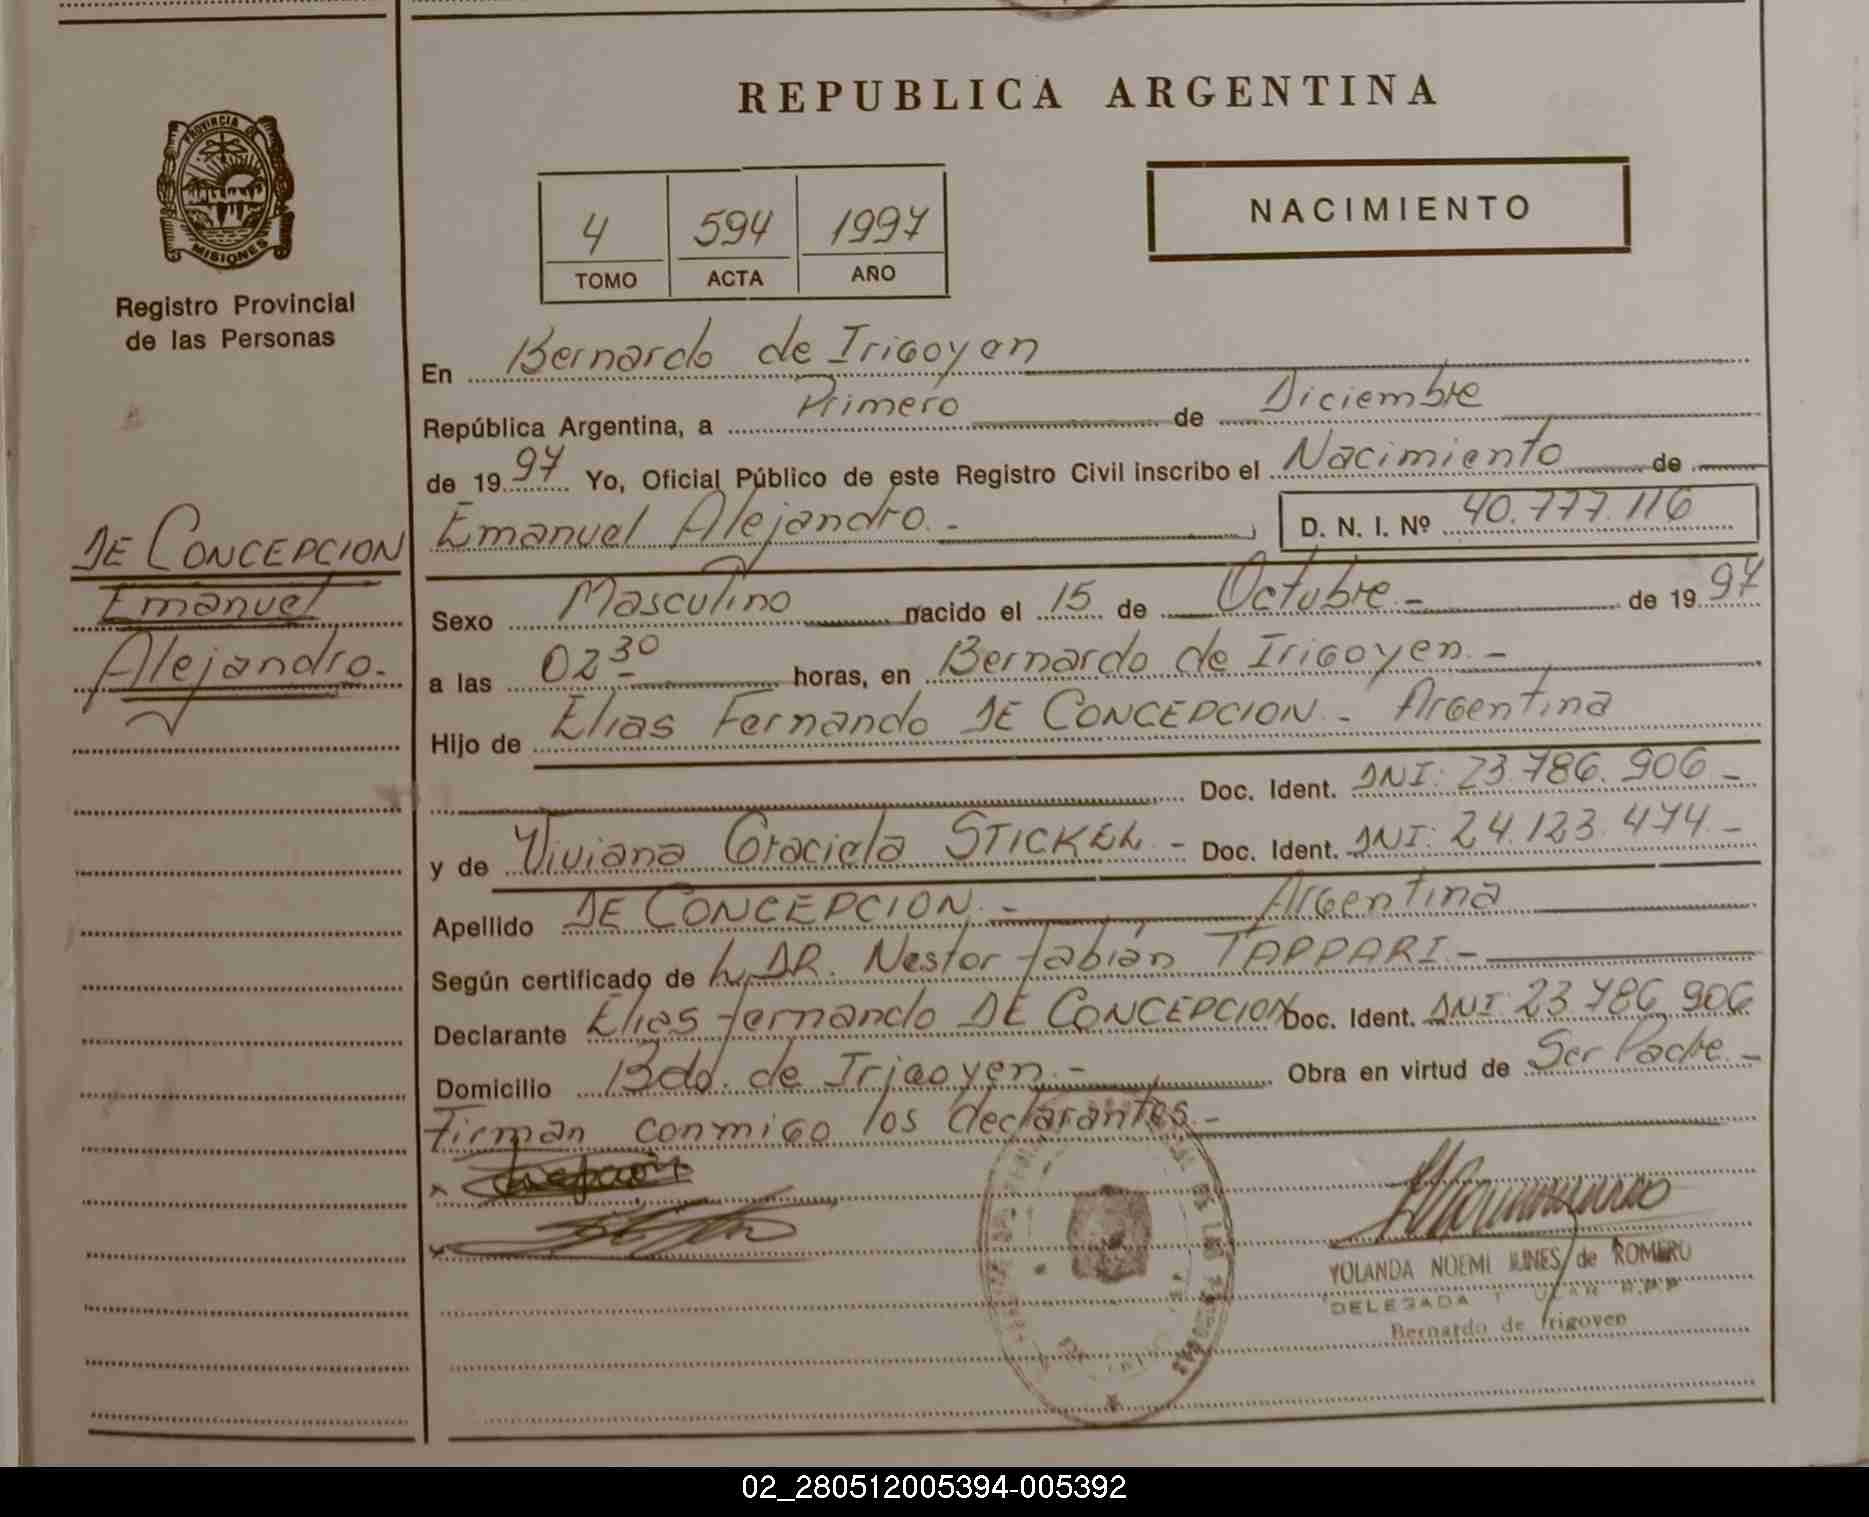 REPUBLICA ARGENTINA
PROVINCIA DE
MISIONES
Registro Provincial
de las Personas
4 594 1997
TOMO ACTA AÑO
NACIMIENTO
En Bernardo de Irigoyen
República Argentina, a Primero de Diciembre
de 1997 Yo, Oficial Público de este Registro Civil inscribo el Nacimiento de
DE CONCEPCION
Emanuel
Alejandro.-
Emanuel Alejandro.- D. N. I. Nº 40.777.116
Sexo Masculino nacido el 15 de Octubre.- de 1997
a las 02 30 horas, en Bernardo de Irigoyen.-
Hijo de Elias Fernando DE CONCEPCION.- Argentina
Doc. Ident. DNI: 23.786.906.-
y de Viviana Graciela STICKEL.- Doc. Ident. DNI: 24.123.474.-
Apellido DE CONCEPCION.- Argentina
Según certificado de L. DR. Nestor fabián TAPPARI.-
Declarante Elias fernando DE CONCEPCION Doc. Ident. DNI 23.786.906
Domicilio Bdo. de Irigoyen.- Obra en virtud de Ser Padre.-
Firman conmigo los declarantes.-
YOLANDA NOEMI de ROMERO
DELEGADA
Bernardo de Irigoyen
02_280512005394-005392